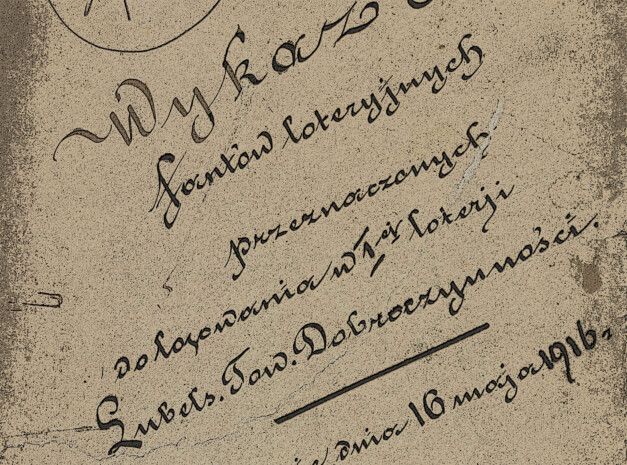 Wykaz
fantów loteryjnych
przeznaczonych
do losowania w 1ej loterji
Lubels. Tow. Dobroczynności.
dnia 16 maja 1916.